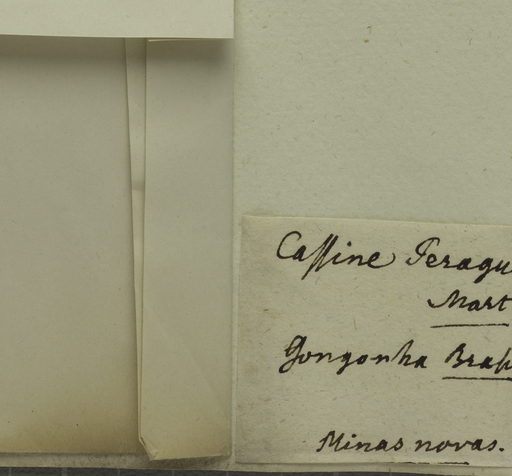 Caſſine Peragu
Mart
Gongonha Bras
Minas novas.